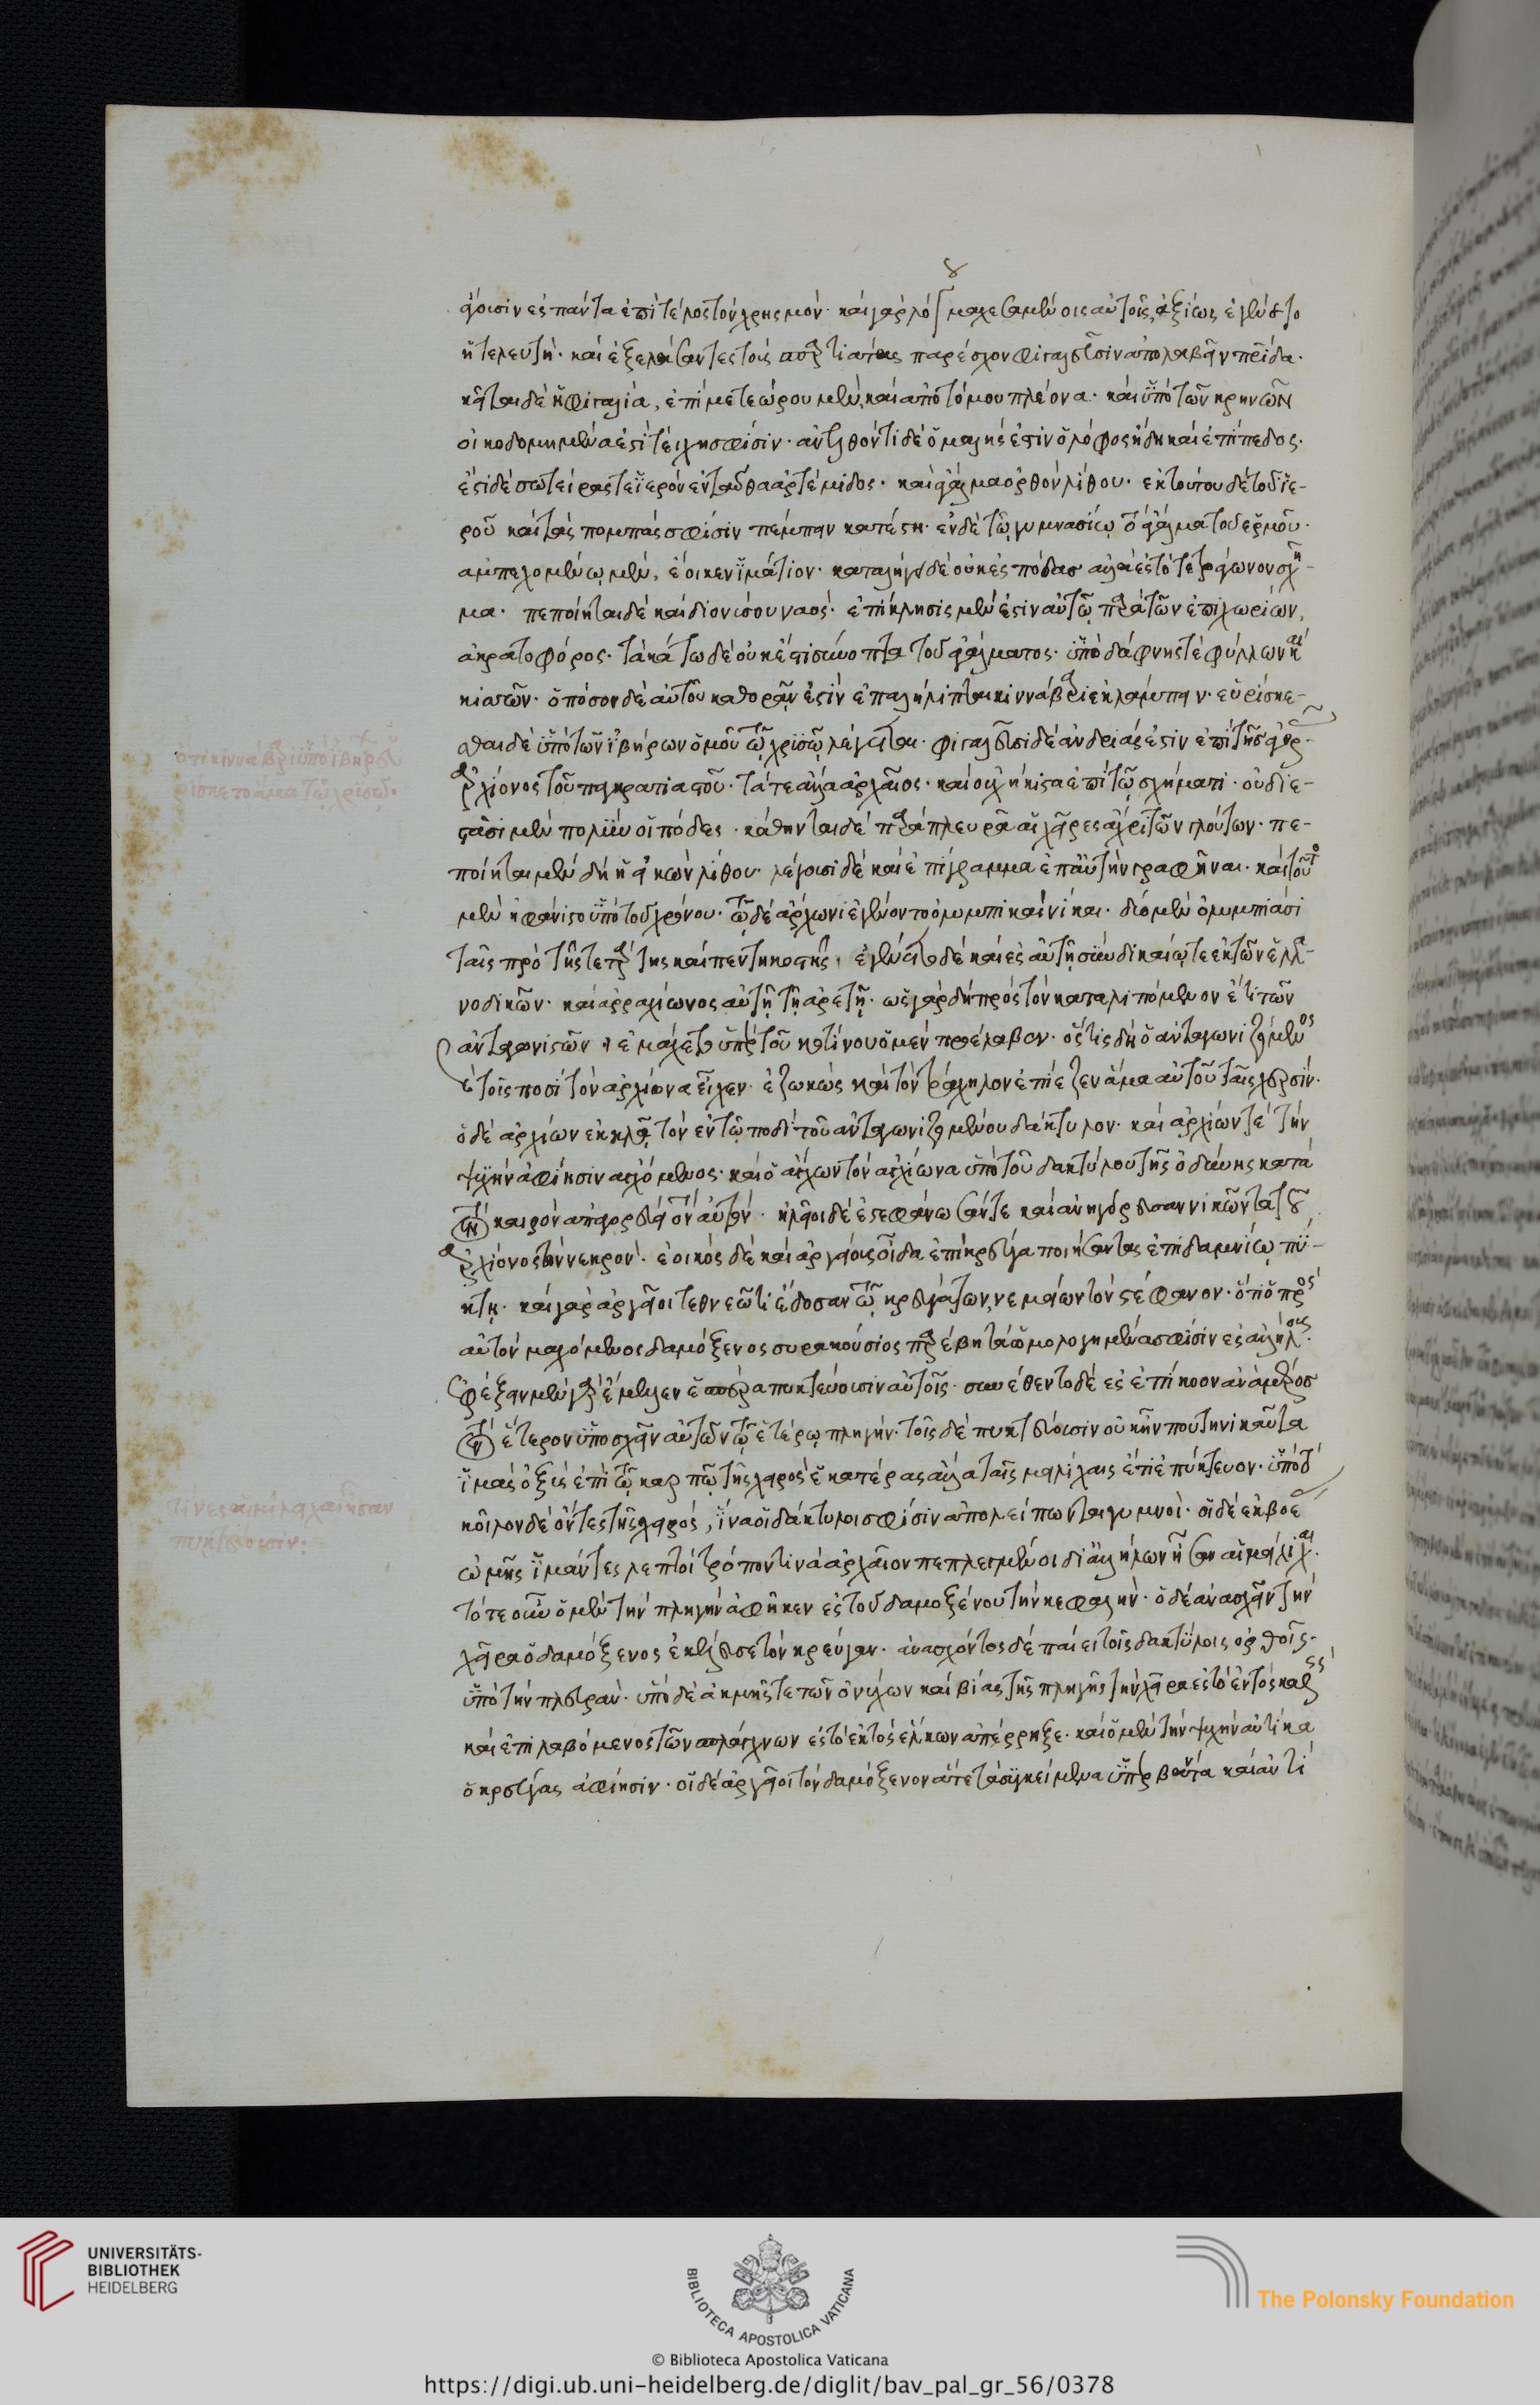 ἄγουσιν ἐς πάντα ἐπὶ τέλος τὸν χρησμόν· καὶ γὰρ λό μαχεσαμένοις αὐτοῖς ἀξίως ἐγένετο
ἡ τελευτή· καὶ ἐξελάσαντες τοὺς σπαρτιάτας παρέσχον φιγαλεῦσιν ἀπολαβεῖν πατρίδα·
κεῖται δὲ ἡ φιγαλία, ἐπὶ μετεώρου μὲν, καὶ ἀποτόμου πλέονα· καὶ ὑπὸ τῶν κρημνῶν
οἰκοδομημένα ἐστὶ τείχη σφίσιν· ἀνελθόντι δὲ ὁμαλής ἐστιν ὁ λόφος ἤδη καὶ ἐπίπεδος·
ἔστι δὲ σωτείρας τε ἱερὸν ἐνταῦθα ἀρτέμιδος· καὶ ἄγαλμα ὀρθὸν λίθου· ἐκ τούτου δὲ τοῦ ἱε-
ροῦ καὶ τὰς πομπάς σφίσιν πέμπειν κατέστη· ἐν δὲ τῷ γυμνασίῳ τὸ ἄγαλμα τοῦ ἑρμοῦ·
ἀμπεχομένῳ μὲν, ἔοικεν ἱμάτιον· καταλήγει δὲ οὐκ ἐς πόδας ἀλλὰ ἐς τὸ τετράγωνον σχῆ-
μα· πεποίηται δὲ καὶ διονύσου ναός· ἐπίκλησις μὲν ἐστιν αὐτῷ παρὰ τῶν ἐπιχωρίων,
ἀκρατοφόρος· τὰ κάτω δὲ οὐκ ἔστι σύνοπτα τοῦ ἀγάλματος· ὑπὸ δάφνης τὲ φύλλων καὶ
κισσῶν· ὁπόσον δὲ αὐτοῦ καθορᾶν ἐστὶν ἐπαλήλιπται κιννάβαρι ἐκλάμπειν· εὑρίσκε-
σθαι δὲ ὑπὸ τῶν ἰβήρων ὁμοῦ τῷ χρυσῷ λέγεται· φιγαλεῦσι δὲ ἀνδριάς ἐστιν ἐπὶ τῆς ἀγορ-
ἀρχίονος τοῦ παγκρατιαστοῦ· τά τε ἄλλα ἀρχαῖος· καὶ οὐχ ἥκιστα ἐπὶ τῷ σχήματι· οὐ διε-
στᾶσι μὲν πολὺ οἱ πόδες· κάθηνται δὲ παρὰ πλευρᾷ αἱ χεῖρες ἄχρι τῶν γλουτῶν· πε-
ποίηται μὲν δὴ ἡ εἰκὼν λίθου· λέγουσι δὲ καὶ ἐπίγραμμα ἐπ αὐτὴν γραφῆναι· καὶ τοῦτο
μὲν ἠφάνιστο ὑπὸ τοῦ χρόνου· τῷ δὲ ἀρχίωνι ἐγένοντο ὀλυμπικαὶ νίκαι· δύο μὲν ὀλυμπιάσι
ταῖς πρὸ τῆς τετάρτης καὶ πεντηκοστῆς· ἐγένετο δὲ καὶ ἐς αὐτῇ σὺν δικαίῳ τε ἐκ τῶν ἑλλα-
νοδικῶν· καὶ ἀρραχίωνος αὐτῇ τῇ ἀρετῇ· ὡς γὰρ δὴ πρὸς τὸν καταλιπόμενον ἔτι τῶν
ἀνταγωνιστῶν ἐμάχετο ὑπὲρ τοῦ κοτίνου ὁ μὲν προέλαβεν· ὅστις δὴ ὁ ἀνταγωνιζόμενος
τοῖς ποσὶ τὸν ἀρχίωνα εἶχεν· ἐζωκὼς καὶ τὸν τράχηλον ἐπίεζεν ἅμα αὐτοῦ ταῖς χερσίν·
ὁ δὲ ἀρχίων ἐκκλᾷ τὸν ἐν τῷ ποδὶ τοῦ ἀνταγωνιζομένου δάκτυλον· καὶ ἀρχίων τὲ τὴν
ψυχὴν ἀφίησιν ἀγχόμενος· καὶ ὁ ἄγχων τὸν ἀρχίωνα ὑπὸ τοῦ δακτύλου τῆς ὀδύνης κατὰ
τὸν καιρὸν ἀπαγορεύει τὸν αὐτόν· ἠλεῖοι δὲ ἐστεφάνωσάν τε καὶ ἀνηγόρευσαν νικῶντα τοῦ
ἀρχίονος τὸν νεκρόν· ἐοικὸς δὲ καὶ ἀργείους οἶδα ἐπὶ κρευγᾳ ποιήσαντας ἐπιδαμνίῳ πύ-
κτῃ· καὶ γὰρ ἀργεῖοι τεθνεῶτι ἔδοσαν τῷ κρεύγᾳ τῶν νεμείων τὸν στέφανον· ὅτι ὁ πρὸς
αὐτὸν μαχόμενος δαμόξενος συρακούσιος παρέβη τὰ ὡμολογημένα σφίσιν ἐς ἀλλήλους·
ἐφέξειν μὲν γὰρ ἔμελλεν ἑσπέρα πυκτεύουσιν αὐτοῖς· συνέθεντο δὲ ἐς ἐπήκοον ἀνὰ μέρος
τὸν ἕτερον ὑποσχεῖν αὐτῶν τῷ ἑτέρῳ πληγήν· τοῖς δὲ πυκτεύουσιν οὐκ ἦν που τηνικαῦτα
ἱμὰς ὀξὺς ἐπὶ τῷ καρπῷ τῆς χειρὸς ἑκατέρας ἀλλὰ ταῖς μειλίχαις ἔτι ἐπύκτευον· ὑπὸ τὸ
κοῖλον δὲ ὄντες τῆς χειρός, ἵνα οἱ δάκτυλοι σφίσιν ἀπολείπωνται γυμνοί· οἱ δὲ ἐκ βοέ
ὠμῆς ἱμάντες λεπτοὶ τρόπον τινὰ ἀρχαῖον πεπλεγμένοι δι ἀλλήλων ἦσαν αἱ μείλιχαι·
τότε οὖν ὁ μὲν τὴν πληγὴν ἀφῆκεν ἐς τοῦ δαμοξένου τὴν κεφαλήν· ὁ δὲ ἀνασχεῖν τὴν
χεῖρα ὁ δαμόξενος ἐκέλευσε τὸν κρεύγαν· ἀνασχόντος δὲ παίει τοῖς δακτύλοις ὀρθοῖς·
ὑπὸ τὴν πλευράν· ὑπὸ δὲ ἀκμῆς τε τῶν ὀνύχων καὶ βίας τῆς πληγῆς τὴν χεῖρα ἐς τὸ ἐντὸς καθεὶς
καὶ ἐπιλαβόμενος τῶν σπλάγχνων ἐς τὸ ἐκτὸς ἕλκων ἀπέρρηξε· καὶ ὁ μὲν τὴν ψυχὴν αὐτίκα
ὁ κρεύγας ἀφίησιν· οἱ δὲ ἀργεῖοι τὸν δαμόξενον ἅτε τὰ συγκείμενα ὑπερβάντα καὶ ἀντὶ
ὅτι κιννάβαρι ὑπὸ ἰβήρων εὑ
ρίσκεται ἅμα τῷ χρυσῷ·
τίνες αἱ μείλιχαι ἦσαν
πυκτεύουσιν·
UNIVERSITÄTS-
BIBLIOTHEK
HEIDELBERG
BIBLIOTECA APOSTOLICA VATICANA
The Polonsky Foundation
© Biblioteca Apostolica Vaticana
https://digi.ub.uni-heidelberg.de/diglit/bav_pal_gr_56/0378